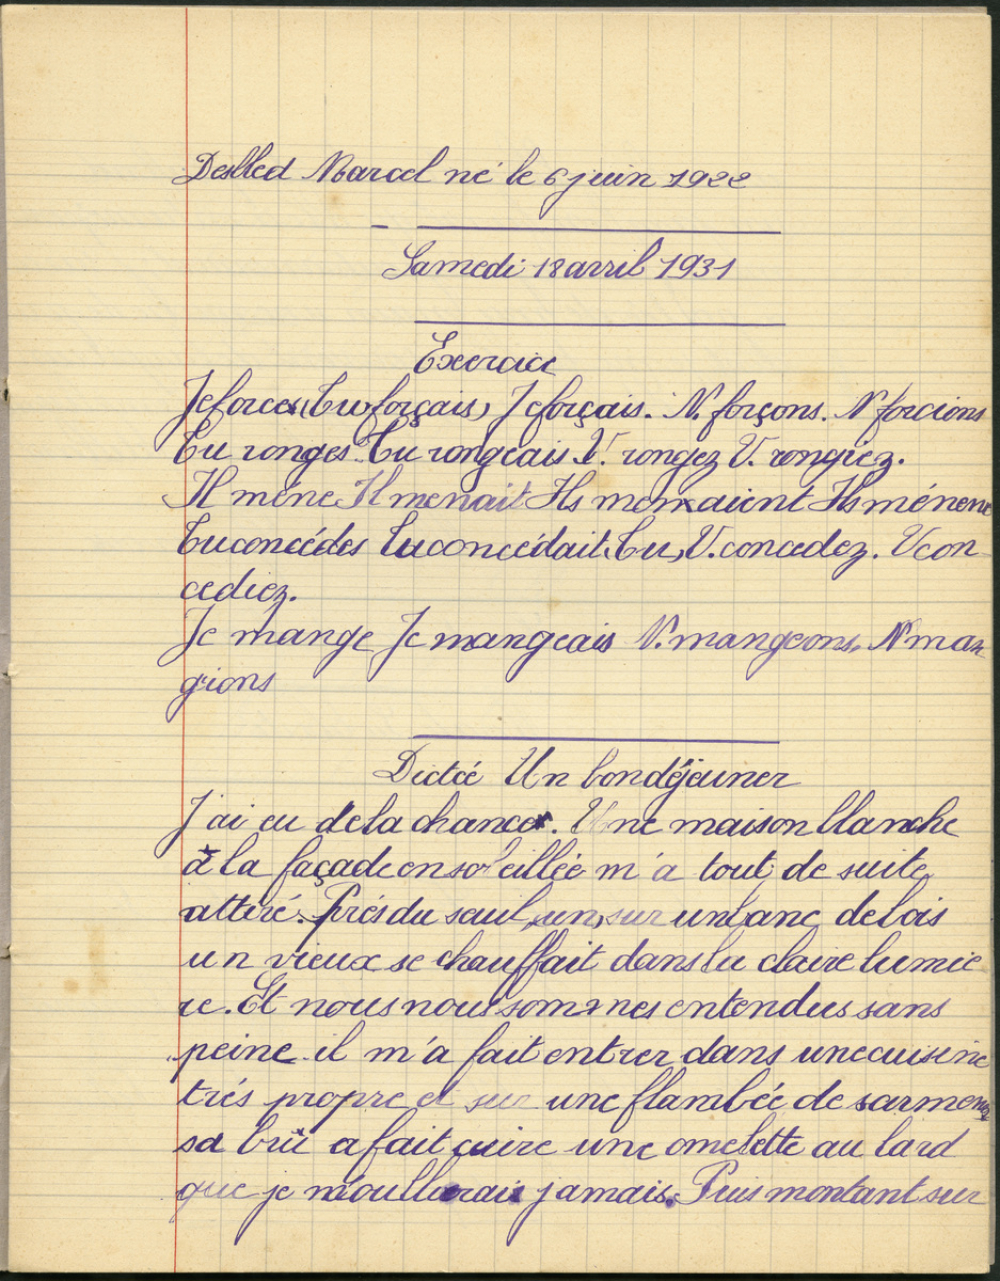 Marcel né le 6 juin 1922
Samedi 18 avril 1931
Exercice
Je forces, (tu) forçais, Je forçais. N. forçons. N forcions
Tu ronges. Tu rongeais V. rongez V. rongiez.
Il méne Il menait Ils menaient Ils ménent
Tu concédes Tu concédait (tu), V. concedez. V con
cediez.
Je mange Je mangeais N. mangeons. N man
gions
Dictée Un bon déjeuner
J'ai eu de la chance. Une maison blanche
à la façade ensoleillée m'a tout de suite
attiré. Prés du seuil (un) sur un banc de bois
un vieux se chauffait dans la claire lumié
re. Et nous nous sommes entendus sans
peine il m'a fait entrer dans une cuisine
trés propre et sur une flambée de sarments
sa bru a fait cuire une omelette au lard
que je n'oublierais jamais. Puis montant sur